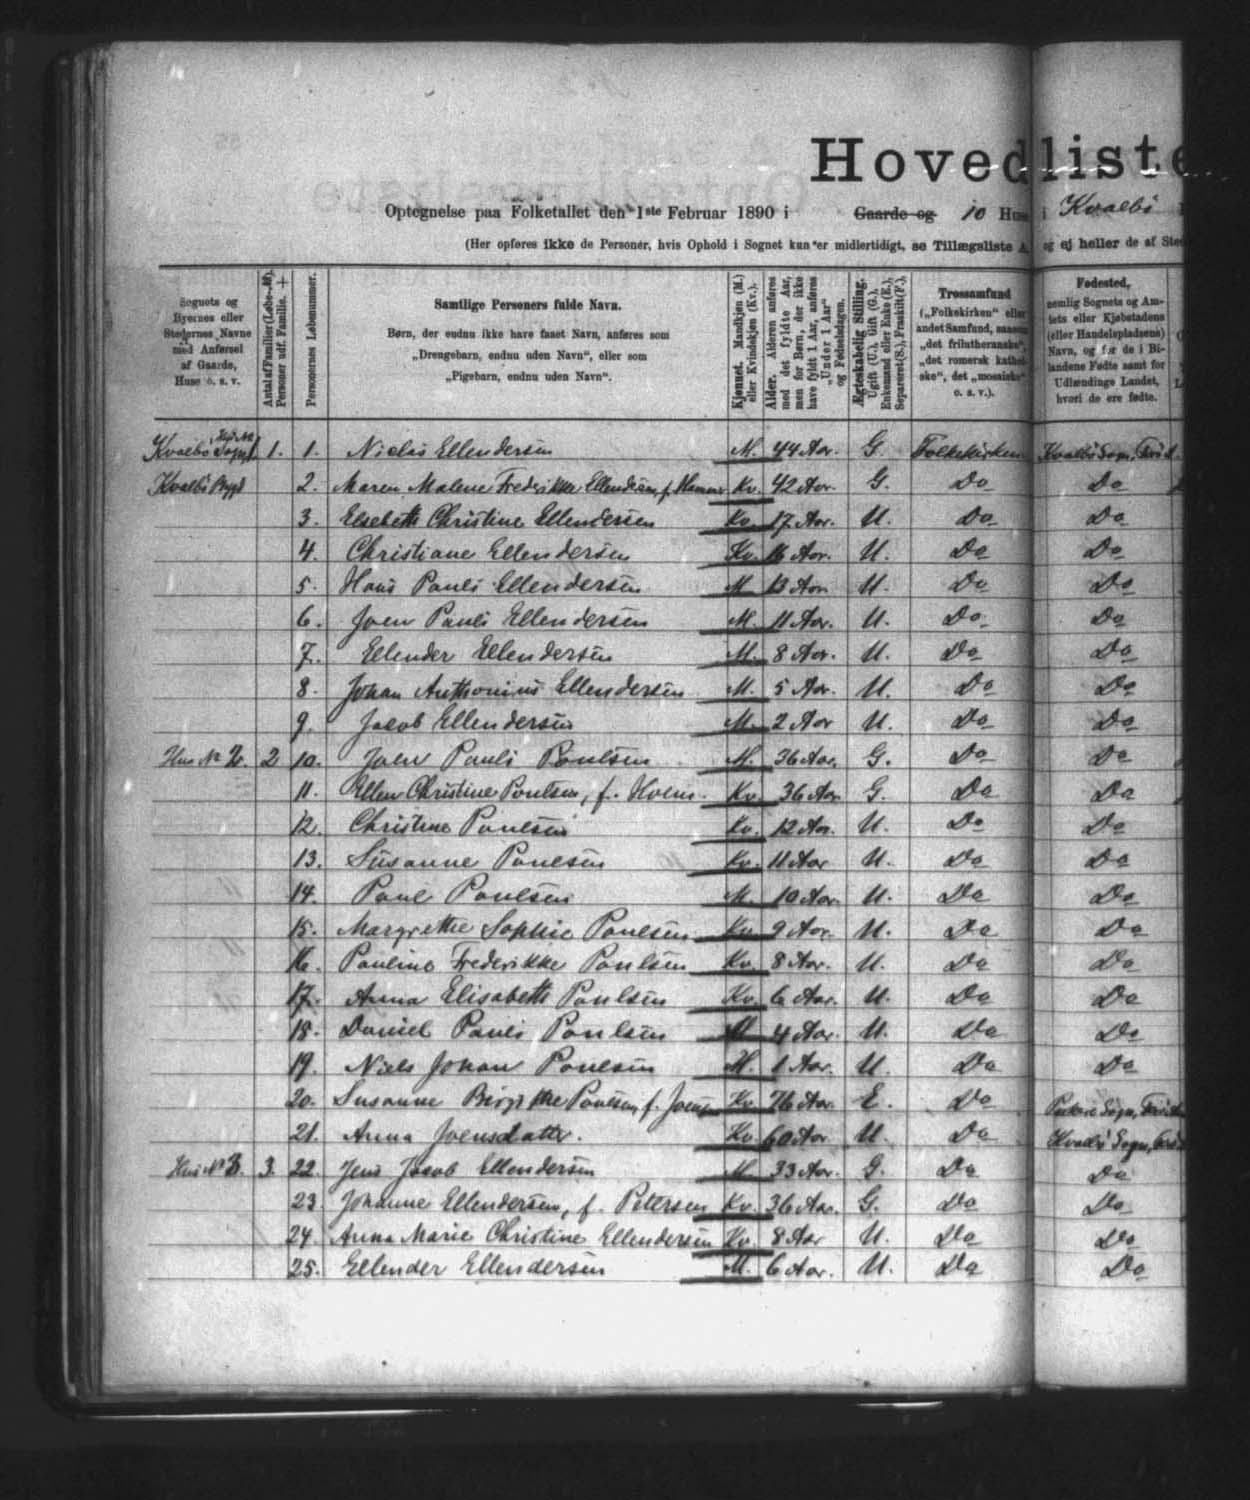 Hovedliste
Optegnelse paa Folketallet den 1ste Februar 1890 i Gaarde og 10 Huse i Kvalbö
(Her opføres ikke de Personer, hvis Ophold i Sognet kun er midlertidigt, se Tillægsliste A, og ej heller de af
Sognets og Byernes eller Stedernes Navne med Anførsel af Gaarde, Huse o. s. v.
Antal af Familier (Løbe-№). Personer udf. Familie. +
Personernes Løbenummer.
Samtlige Personers fulde Navn.
Børn, der endnu ikke have faaet Navn, anføres som
„Drengebarn, endnu uden Navn“, eller som
„Pigebarn, endnu uden Navn“.
Kjønnet. Mandkjøn (M.) eller Kvindekjøn (Kv.).
Alder. Alderen anføres med det fyldte Aar, men for Børn, der ikke have fyldt 1 Aar, anføres „Under 1 Aar“ og Fødselsdagen.
Ægteskabelig Stilling. Ugift (U.), Gift (G.), Enkemand eller Enke (E.), Separeret (S.), Fraskilt (F.).
Trossamfund („Folkekirken“ eller andet Samfund, saasom „det frilutheranske“, „det romersk katholske“, det „mosaiske“ o. s. v.).
Fødested, nemlig Sognets og Amtets eller Kjøbstadens (eller Handelspladsens) Navn, og for de i Bilandene Fødte samt for Udlændinge Landet, hvori de ere fødte.
Kvalbö Sogn Hus № 1. 1. 1. Niclas Ellendersen M. 44 Aar. G. Folkekirken Kvalbö Sogn,
Kvalbö Bygd 2. Maren Malene Frederikke Ellendersen, f. Hammer Kv. 42 Aar. G. Do Do
3. Elsebeth Christine Ellendersen Kv. 17 Aar. U. Do Do
4. Christiane Ellendersen Kv. 16 Aar. U. Do Do
5. Hans Pauli Ellendersen M. 13 Aar U. Do Do
6. Joen Pauli Ellendersen M. 11 Aar. U. Do Do
7. Ellender Ellendersen M. 8 Aar. U. Do Do
8. Johan Anthonius Ellendersen M. 5 Aar. U. Do Do
9. Jacob Ellendersen M. 2 Aar U. Do Do
Hus № 2. 2 10. Joen Pauli Poulsen M. 36 Aar. G. Do Do
11. Ellen Christine Poulsen, f. Kv. 36 Aar G. Do Do
12. Christine Poulsen Kv. 12 Aar. U. Do Do
13. Susanne Poulsen Kv. 11 Aar U. Do Do
14. Poul Poulsen M. 10 Aar. U. Do Do
15. Margrethe Sophie Poulsen Kv. 9 Aar. U. Do Do
16. Pauline Frederikke Poulsen Kv. 8 Aar. U. Do Do
17. Anna Elisabeth Poulsen Kv. 6 Aar. U. Do Do
18. Daniel Pauli Poulsen M 4 Aar. U. Do Do
19. Niels Johan Poulsen M. 1 Aar. U. Do Do
20. Susanne Birgitthe Poulsen, f. Kv. 76 Aar. E. Do Sogn,
21. Anna Joensdatter. Kv. 60 Aar U. Do Kvalbö Sogn,
Hus № 3. 3. 22. Jens Jacob Ellendersen M. 33 Aar. G. Do Do
23. Johanne Ellendersen, f. Petersen Kv. 36 Aar. G. Do Do
24. Anna Marie Christine Ellendersen Kv. 8 Aar U. Do Do
25. Ellender Ellendersen M. 6 Aar. U. Do Do